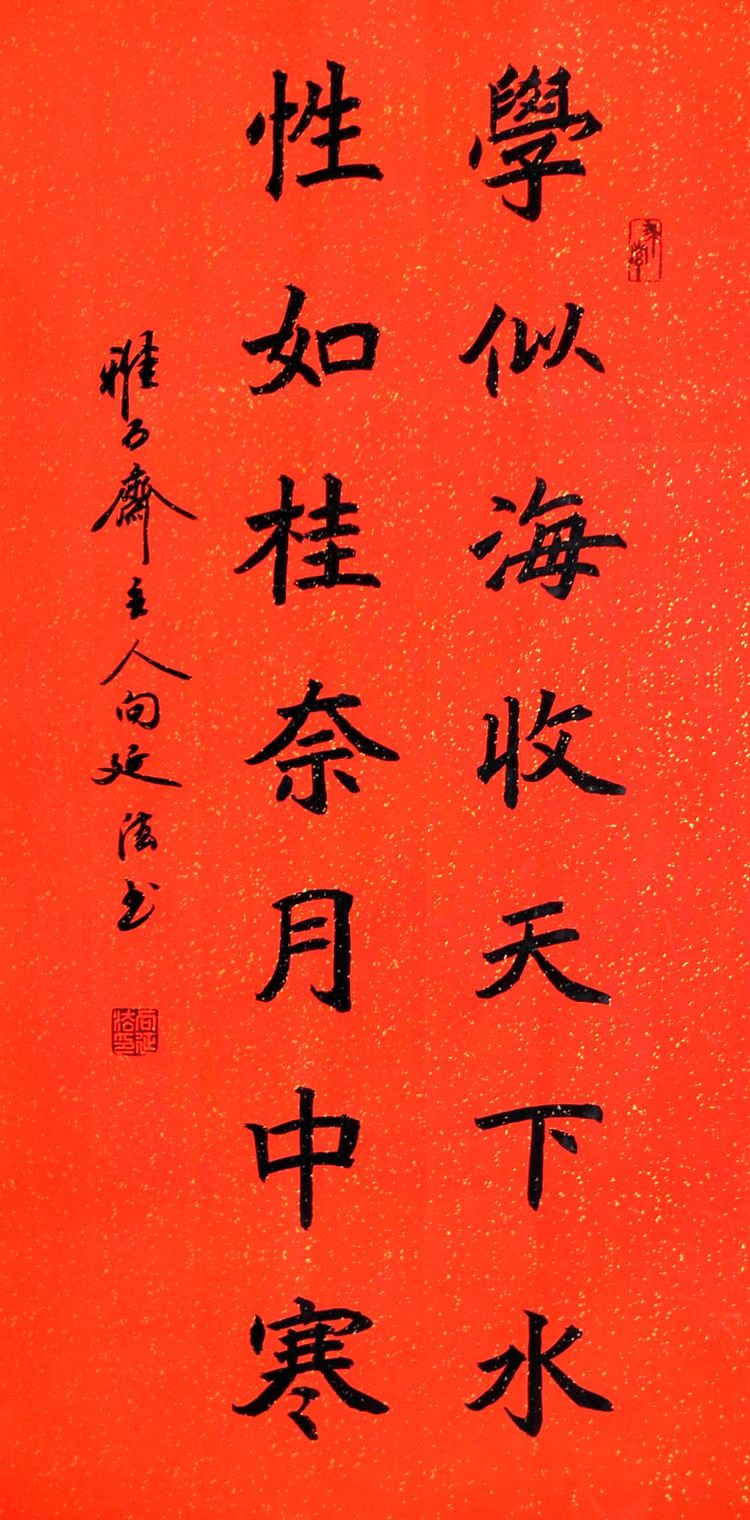 學似海收天下水
性如桂奈月中寒
雅齋主人向延法书
向延法印